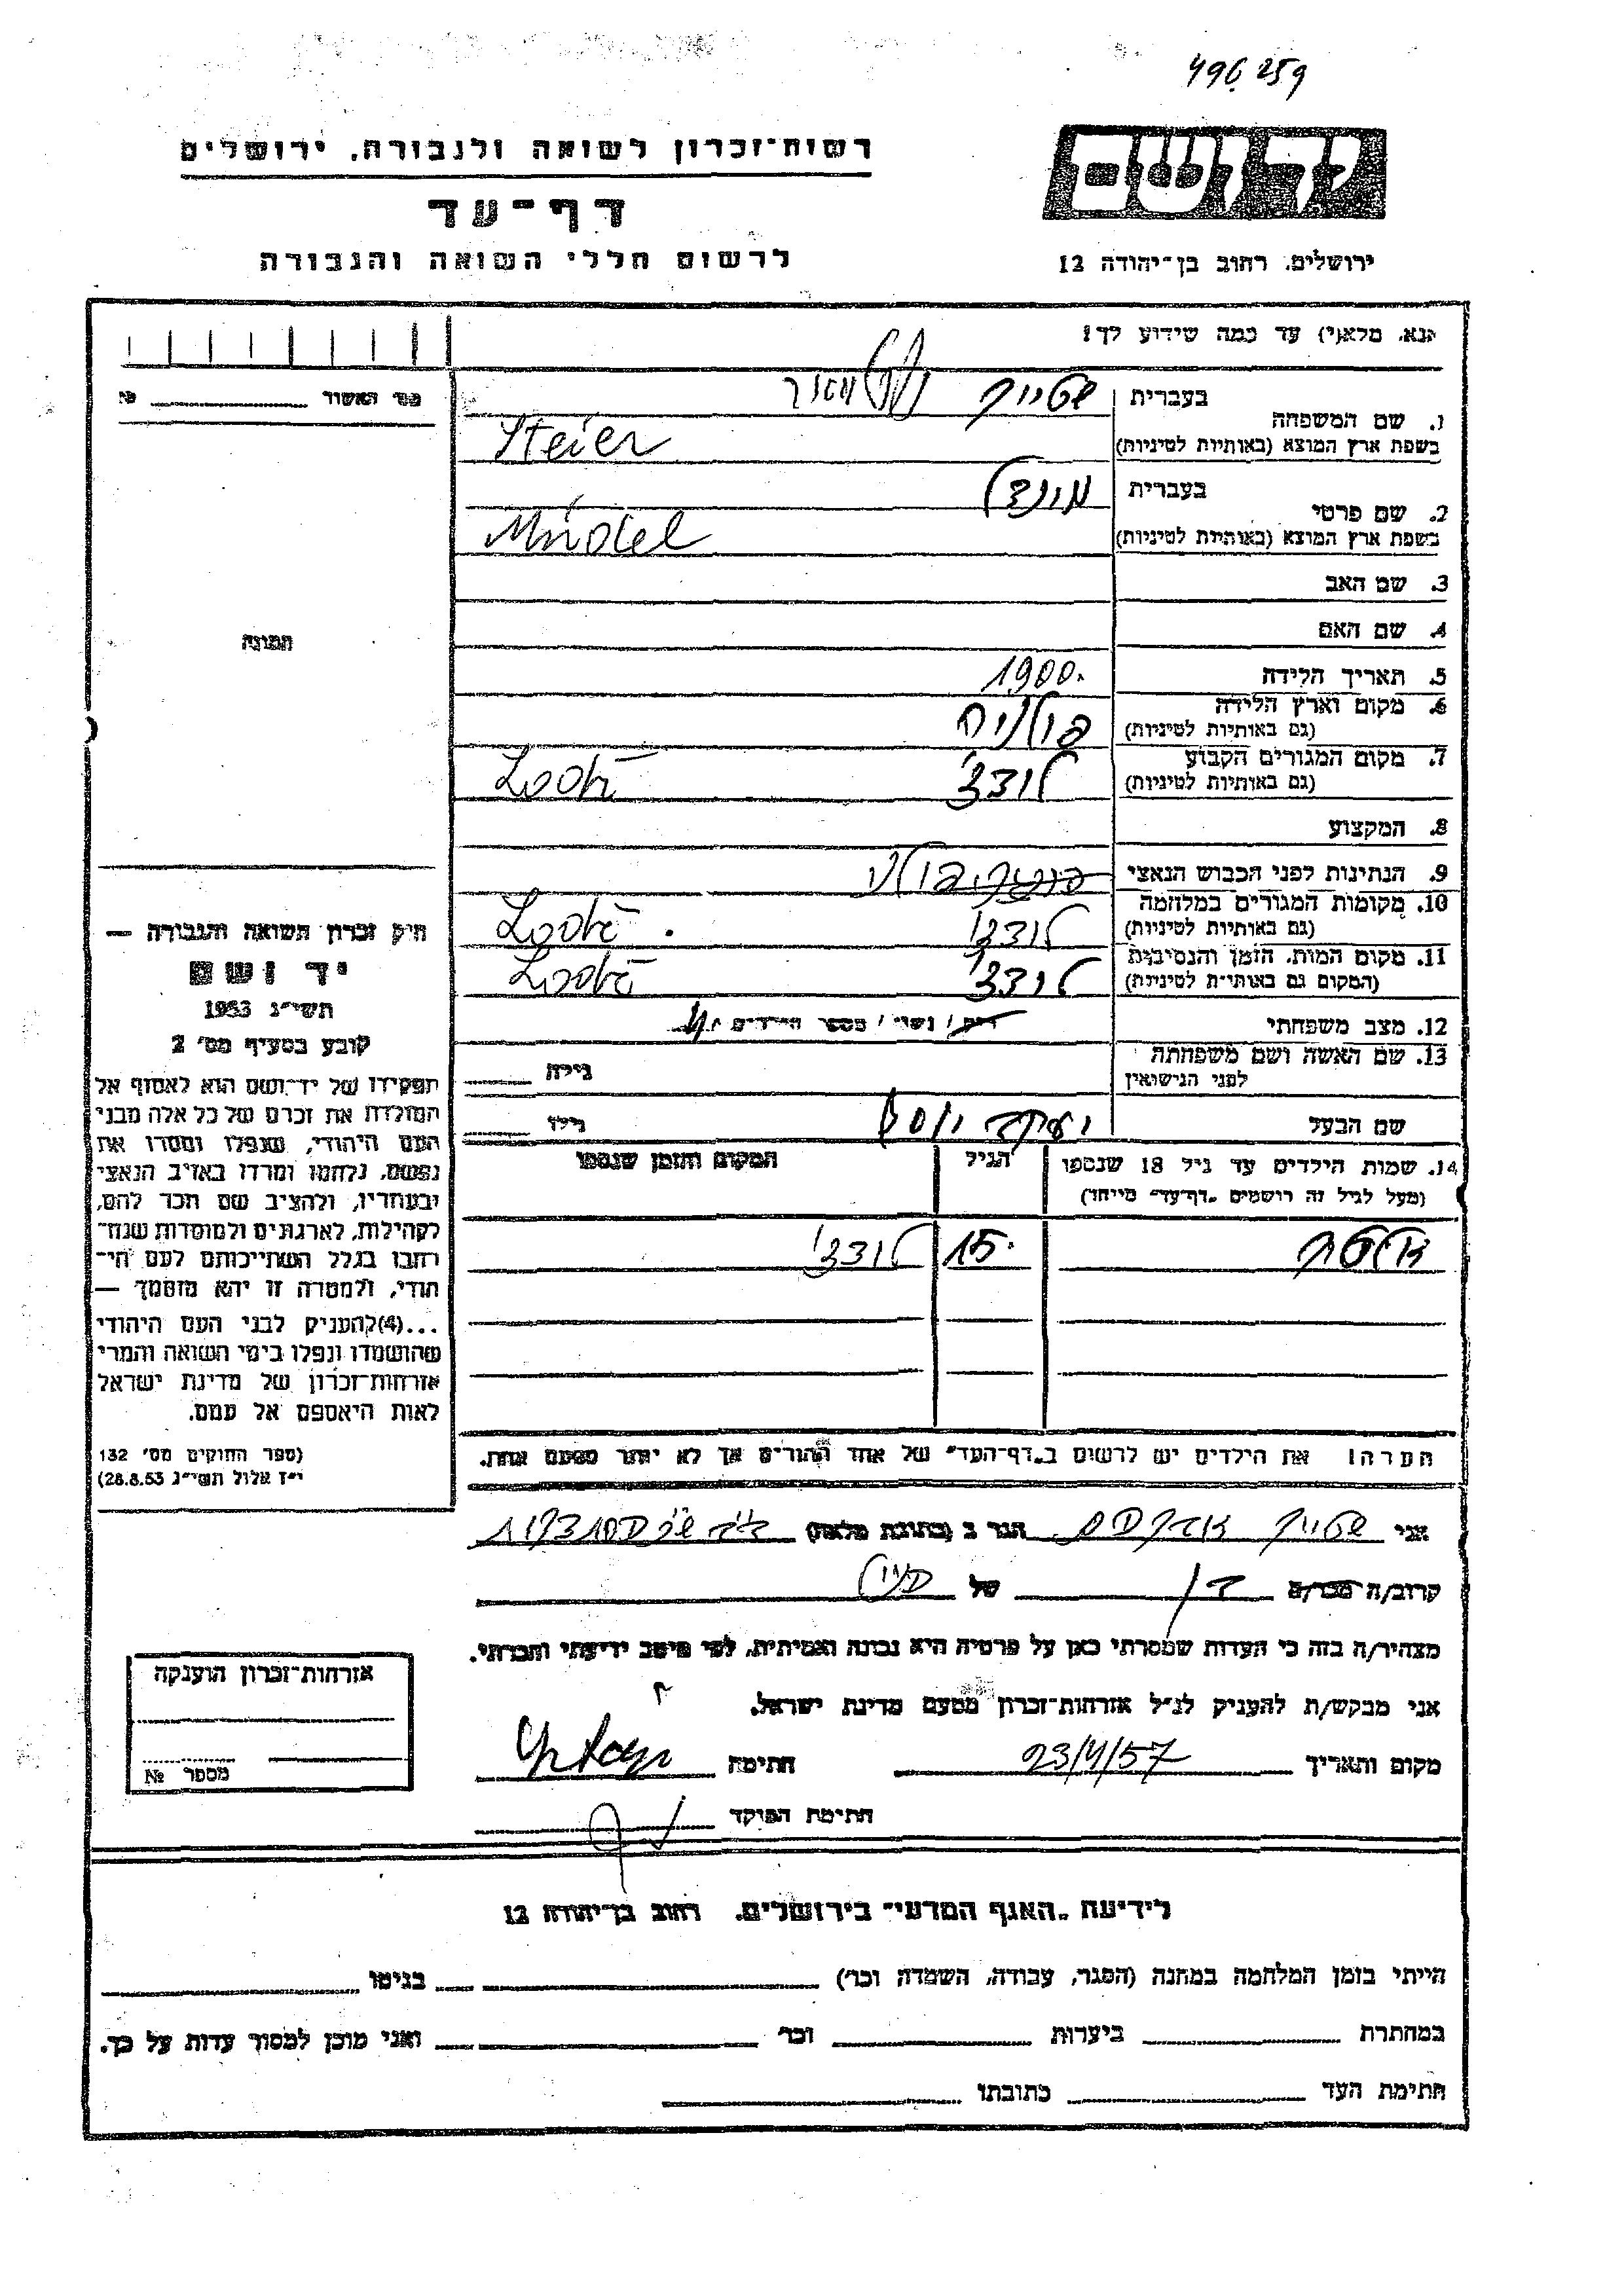 496.259
רשות־זכרון לשואה ולגבורה. ירושלים
דף־עד
לרשום חללי השואה והגבורה
יד ושם
ירושלים. רחוב בן־יהודה 12
נא. מלא(י) עד כמה שידוע לך!
מס׳ האשור № 
1. שם המשפחה
בעברית שטייר
בשפת ארץ המוצא (באותיות לטיניות) Steier
2. שם פרטי
בעברית מינדל
בשפת ארץ המוצא (באותיות לטיניות) Mindel
3. שם האב
4. שם האם
5. תאריך הלידה 1900.
6. מקום וארץ הלידה (גם באותיות לטיניות) פולניה
7. מקום המגורים הקבוע (גם באותיות לטיניות) לודז׳
8. המקצוע
9. הנתינות לפני הכבוש הנאצי
10. מקומות המגורים במלחמה (גם באותיות לטיניות)
11. מקום המות. הזמן והנסיבות (המקום גם באותיות לטיניות)
12. מצב משפחתי רוק / נשוי / מספר הילדים 4
13. שם האשה ושם משפחתה לפני הנישואין גילה
שם הבעל יעקב יוסף גילו
14. שמות הילדים עד גיל 18 שנספו
(מעל לגיל זה רושמים ״דף־עד״ מיוחד)
הגיל
המקום והזמן שנספו
15 לודז׳
הערה! את הילדים יש לרשום ב״דף־העד״ של אחד ההורים אך לא יותר מפעם אחת.
תמונה
חוק זכרון השואה והגבורה —
יד ושם
תשי״ג 1953
קובע בסעיף מס׳ 2
תפקידו של יד־ושם הוא לאסוף אל
המולדת את זכרם של כל אלה מבני
העם היהודי, שנפלו ומסרו את
נפשם, נלחמו ומרדו באויב הנאצי
ובעוזריו, ולהציב שם וזכר להם,
לקהילות, לארגונים ולמוסדות שנח־
רבו בגלל השתייכותם לעם הי־
הודי, ולמטרה זו יהא מוסמך —
...(4)להעניק לבני העם היהודי
שהושמדו ונפלו בימי השואה והמרי
אזרחות־זכרון של מדינת ישראל
לאות היאספם אל עמם.
(ספר החוקים מס׳ 132
י״ז אלול תשי״ג 28.8.53)
אני שטייר הגר ב (כתובת מלאה)
קרוב/ה מכר/ה בן של
מצהיר/ה בזה כי העדות שמסרתי כאן על פרטיה היא נכונה ואמיתית, לפי מיטב ידיעתי והכרתי.
אני מבקש/ת להעניק לנ״ל אזרחות־זכרון מטעם מדינת ישראל.
מקום ותאריך 23/4/57 חתימה
חתימת הפוקד
אזרחות־זכרון הוענקה
מספר №
לידיעת ״האגף המדעי״ בירושלים. רחוב בן־יהודה 12
הייתי בזמן המלחמה במחנה (הסגר, עבודה, השמדה וכו׳) בגיטו
במחתרת ביערות וכו׳ ואני מוכן למסור עדות על כך.
חתימת העד כתובתו